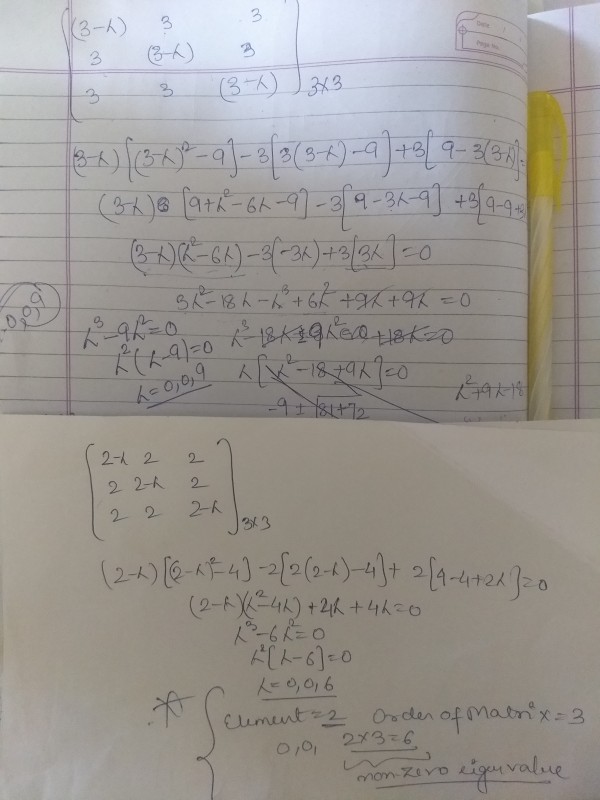 (3-λ) 3 3
3 (3-λ) 3
3 3 (3-λ) 3x3
Date
Page No.
(3-λ)[(3-λ)²-9]-3[3(3-λ)-9]+3[9-3(3-λ)]=
(3-λ) [9+λ²-6λ-9]-3[9-3λ-9] +3[9-9+3
(3-λ)(λ²-6λ)-3(-3λ)+3[3λ]=0
3λ²-18λ-λ³+6λ²+9λ+9λ=0
λ³-9λ²=0 λ³-18λ±9λ²=0+18λ=0
λ²(λ-9)=0 λ[λ²-18+9λ]=0
0,0,9
λ=0,0,9 λ²+9λ-18
-9 ± √81+72
2-λ 2 2
2 2-λ 2
2 2 2-λ 3x3
(2-λ)[(2-λ)²-4]-2[2(2-λ)-4]+ 2[4-4+2λ]=0
(2-λ)(λ²-4λ)+4λ+4λ=0
λ³-6λ²=0
λ²[λ-6]=0
λ=0,0,6
Element=2 Order of Matrix=3
0,0, 2x3=6
non-zero eigenvalue